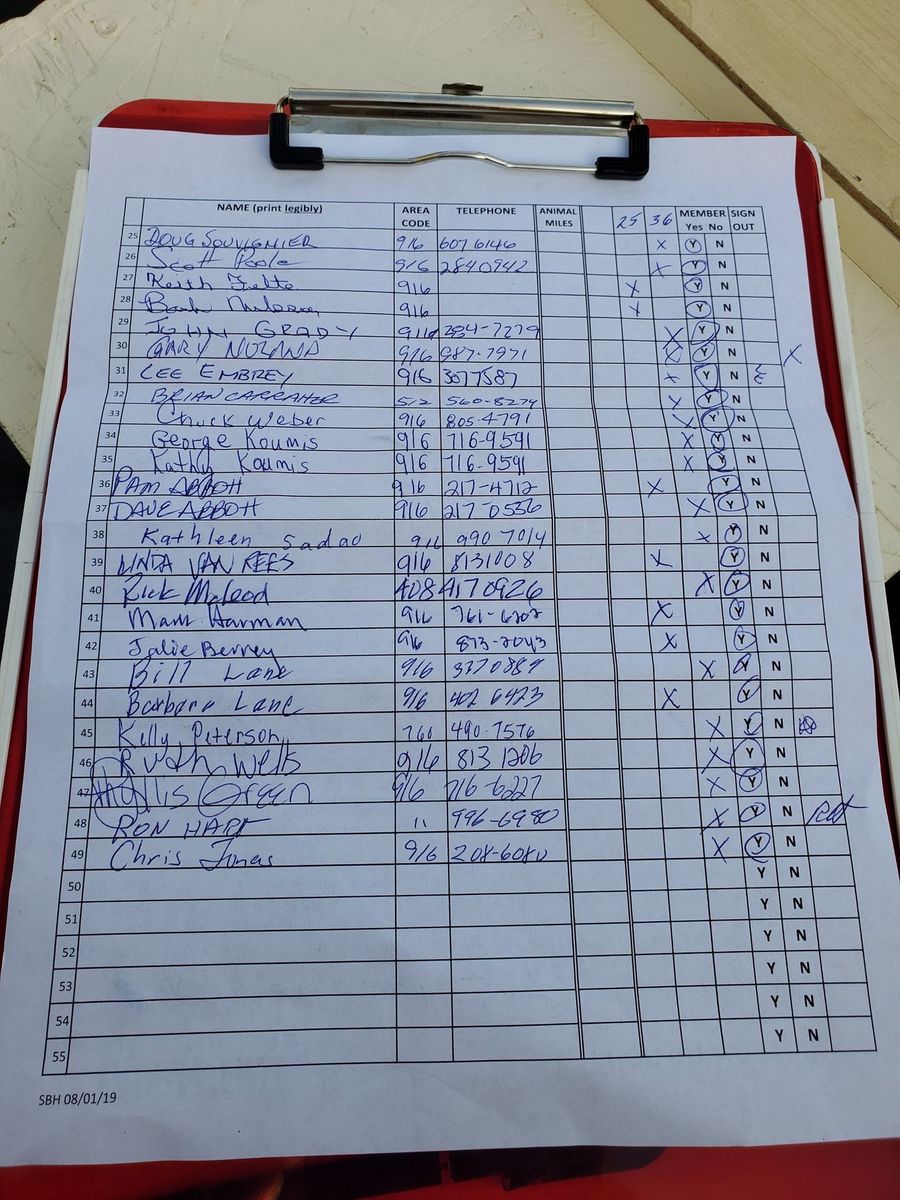 NAME (print legibly) AREA CODE TELEPHONE ANIMAL MILES 25 36 MEMBER Yes No SIGN OUT
25 DOUG SOUVIGNIER 916 607 6146 X Y N
26 Scott Poole 916 2840942 X Y N
27 Keith 916 X Y N
28 916 X Y N
29 JOHN GRADY 916 284-7279 X Y N
30 GARY NOLAND 916 987-7971 X Y N X
31 LEE EMBREY 916 3077587 X Y N
32 BRIAN CARRAHER 512 560-8274 X Y N
33 Chuck Weber 916 805-4791 X Y N
34 George Koumis 916 716-9591 X Y N
35 Kathy Koumis 916 716-9591 X Y N
36 PAM ABBOTT 916 217-4712 X Y N
37 DAVE ABBOTT 916 217 0536 X Y N
38 Kathleen Sadao 916 990 7014 X Y N
39 LINDA VAN REES 916 8131008 X Y N
40 Rick McLeod 408 4170926 X Y N
41 Harman 916 761-6202 X Y N
42 Julie Berrey 916 873-2043 X Y N
43 Bill Lane 916 3370889 X Y N
44 Barbara Lane 916 402 6423 X Y N
45 Kelly Peterson 760 490-7576 X Y N
46 Ruth Wells 916 813 1206 X Y N
47 Phyllis Green 916 716-6227 X Y N
48 RON HART " 996-6980 X Y N
49 Chris Jonas 916 208-6080 X Y N
50 Y N
51 Y N
52 Y N
53 Y N
54 Y N
55 Y N
SBH 08/01/19